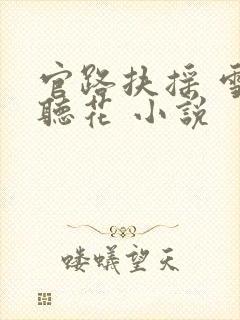 官路扶摇 雪
聽花 小說
喽蟻望天